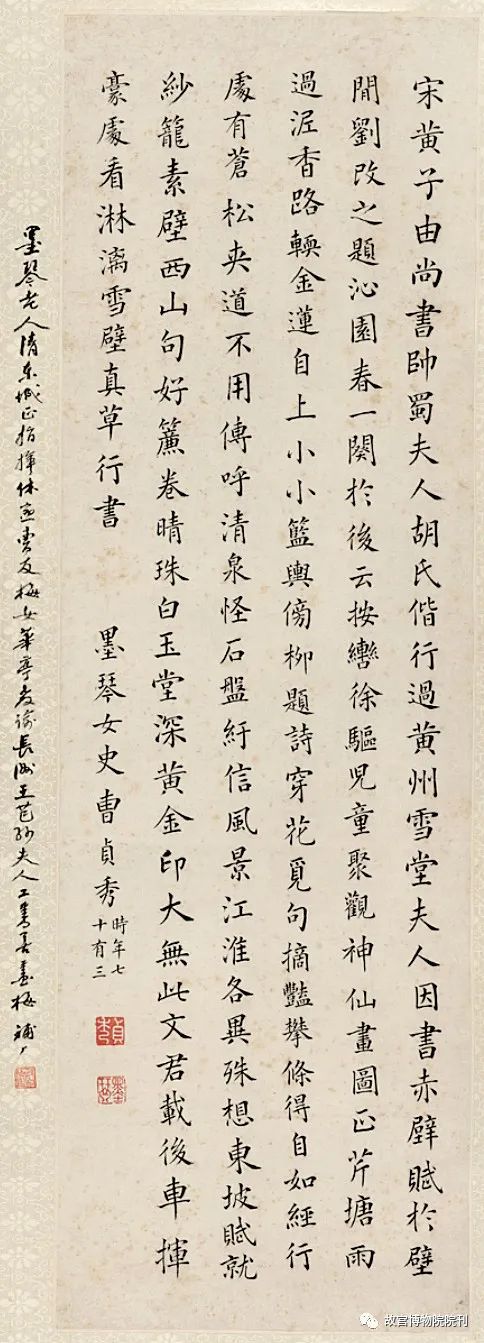 宋黃子由尚書帥蜀夫人胡氏偕行過黃州雪堂夫人因書赤壁賦於壁
間劉改之題沁園春一闋於後云按轡徐驅兒童聚觀神仙畫圖正芹塘雨
過泥香路輭金蓮自上小小籃輿傍柳題詩穿花覓句摘豔攀條得自如經行
處有蒼松夾道不用傳呼清泉怪石盤紆信風景江淮各異殊想東坡賦就
紗籠素壁西山句好簾卷晴珠白玉堂深黃金印大無此文君載後車揮
豪處看淋漓雪壁真草行書
墨琴女史曹貞秀
時年七
十有三
貞秀
墨琴
墨琴老人清東城正指揮休寧曹友梅女華亭教諭長洲王芑孫夫人工書善畫梅
故宫博物院院刊